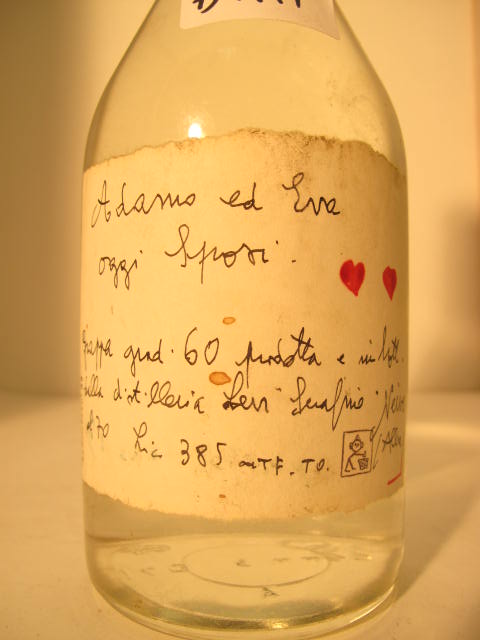 Adamo ed Eva
oggi Sposi.
Grappa grad. 60 prodotta e imbott.
dalla distilleria Levi Serafino Neive
cl. 70 Lic 385 UTF. TO. Alba